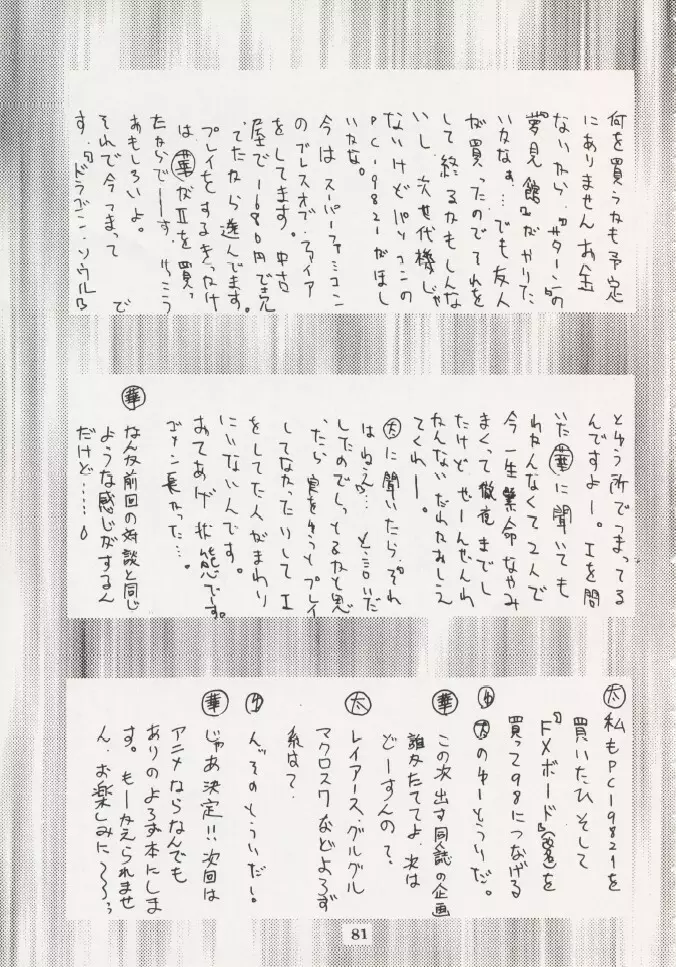 何を買うかも予定
にありません お金
ないから、『サターン』の
夢見館』がやりた
いかなぁ…でも友人
が買ったのでそれを
して終るかもしんな
いし、次世代機じゃ
ないけどパソコンの
PC-9821がほし
いかな。
今はスーパーファミコン
のブレスオブ・ファイア
をしてます。中古
屋で1680円で売
ってたから遊んでます。
プレイをするきっかけ
は、華がⅡを買っ
たからでーす。けっこう
おもしろいよ。
それで今つまって で
す。『ドラゴン・ソウル』
という所でつまってる
んですよー。Ⅰを聞
いた華に聞いても
わかんなくて2人で
今一生懸命なやみ
まくって徹夜までし
たけどぜーんぜんわ
かんないだれかおしえ
てくれー。
太に聞いたら、それ
はねえ…と言いだ
したのでしってるかと思
ったら実をゆうとプレイ
してなかったりしてⅠ
をしてた人がまわり
にいないんです。
おてあげ状態です。
ゴメン長かった…。
華 なんか前回の対談と同じ
ような感じがするん
だけど……
太 私もPC-9821を
買いたひ そして
『FXボード』を
買って98につなげる
太のゆーとうりだ。
華 この次出す同誌の企画
誰かたててよ、次は
どーすんの?
太 レイアース、グルグル
マクロスワなどよろず
系はて、
んぞのとうりだー。
華 じゃあ決定!!次回は
アニメならなんでも
ありのよろず本にしま
す。もーかえられませ
ん、お楽しみに〜
81